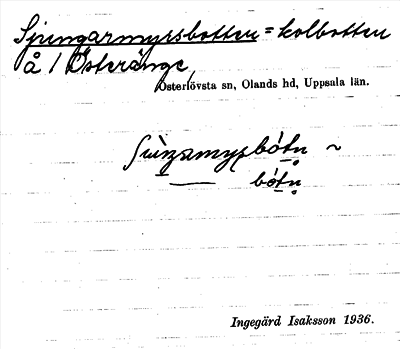 Sjungarmyrsbotten = kolbotten
å / Österänge,
Österlövsta sn, Olands hd, Uppsala län.
bó́tn̥ ~
bó́tn̥
Ingegärd Isaksson 1936.